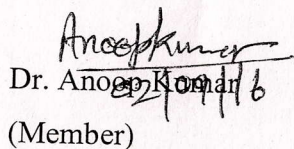 Anoopkumar
Dr. Anoop Kumar
(Member)